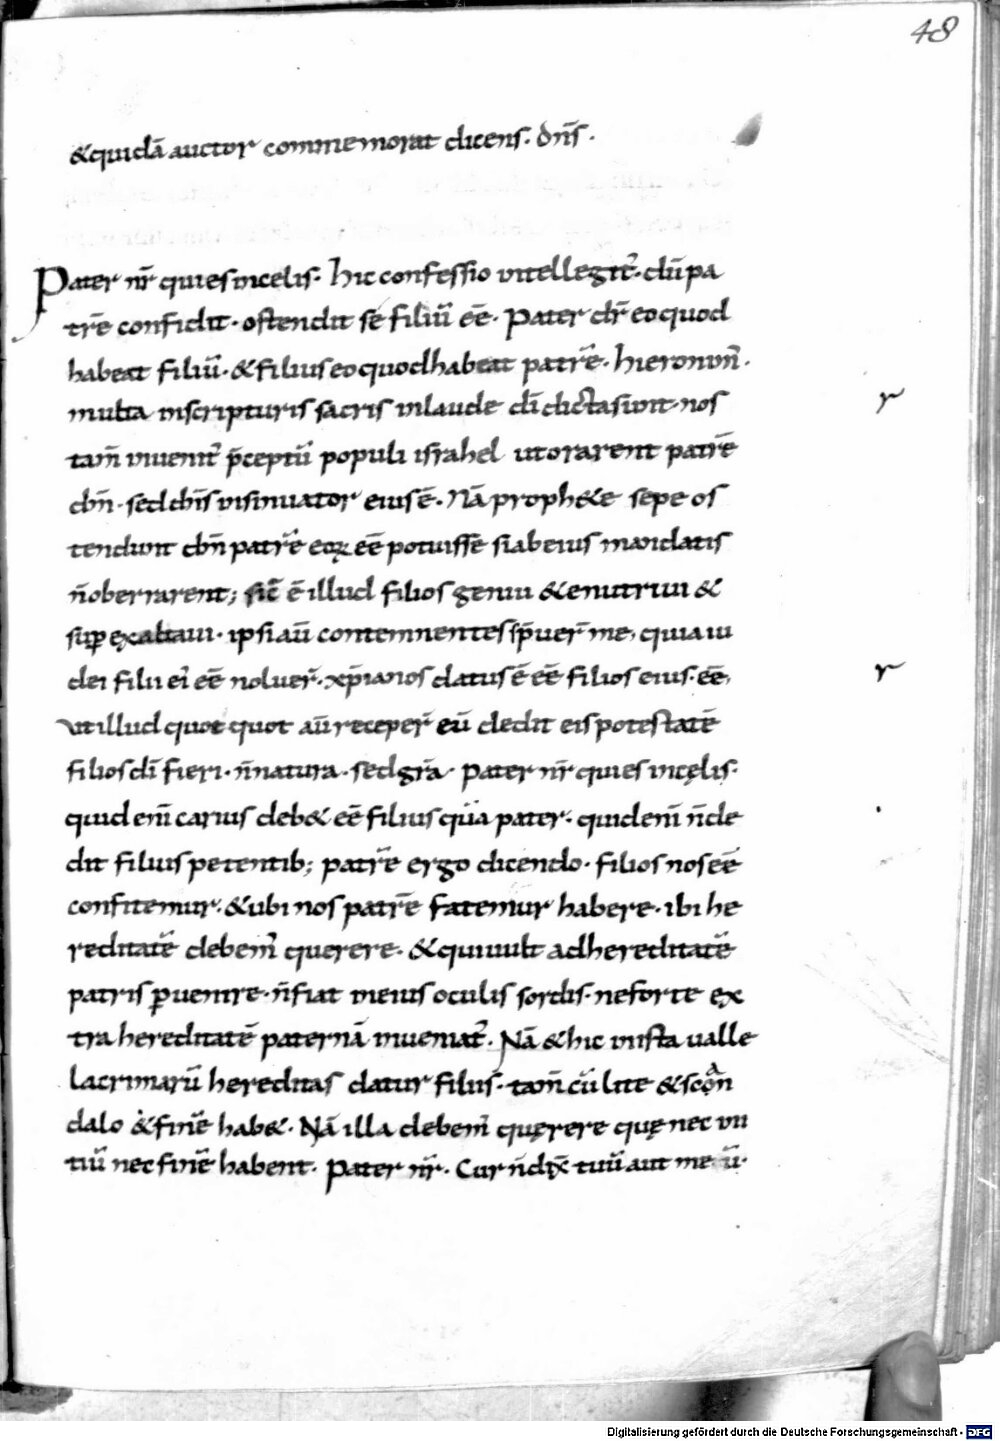 48
&quidā auctor commemorat dicens. dn̄s.
Pater nr̄ qui es in celis. hic confessio intellegit̄. dū pa
trē confidit. ostendit se filiū eē. Pater dr̄ eo quod
habeat filiū. & filius eo quod habeat patrē. hieronim̄.
multa in scripturis sacris in laude dī dicta sunt. nos
tam̄ invenit̄ p̄ceptū populi israhel ut orarent patrē
dn̄. sed dn̄s insinuator eius ē. Nā proph&e sepe os
tendunt dn̄ patrē eoꝝ eē potuisse si ab eius mandatis
n̄ oberrarent; sic̄ ē illud filios genui & enutrivi &
sup exaltavi. ipsi aū contemnentes sp̄uer̄ me, quia iu
dei filii ei eē noluer̄. xp̄ianos datus ē eē filios eius. eē,
ut illud quot quot aū receper̄ eū dedit eis potestatē
filios dī fieri. n̄ natura. sed gr̄a. Pater nr̄ qui es in cęlis.
quid enī carius deb& eē filius quā pater. quid enī n̄ de
dit filius petentib; patrē ergo dicendo. filios nos eē
confitemur. & ubi nos patrē fatemur habere. ibi he
reditatē debem̄ querere. & qui vult ad hereditatē
patris p̱venire. n̄ fiat in eius oculis sordis. ne forte ex
tra hereditatē paternā inveniat̄. Nā & hic in ista valle
lacrimarū hereditas datur filiis. tam̄ cū lite & scan
dalo & finē hab&. Nā illa debem̄ quęrere quę nec vi
tiū nec finē habent. Pater nr̄. Cur n̄ dix̄ tuū aut meū.
r
r
Digitalisierung gefördert durch die Deutsche Forschungsgemeinschaft - DFG